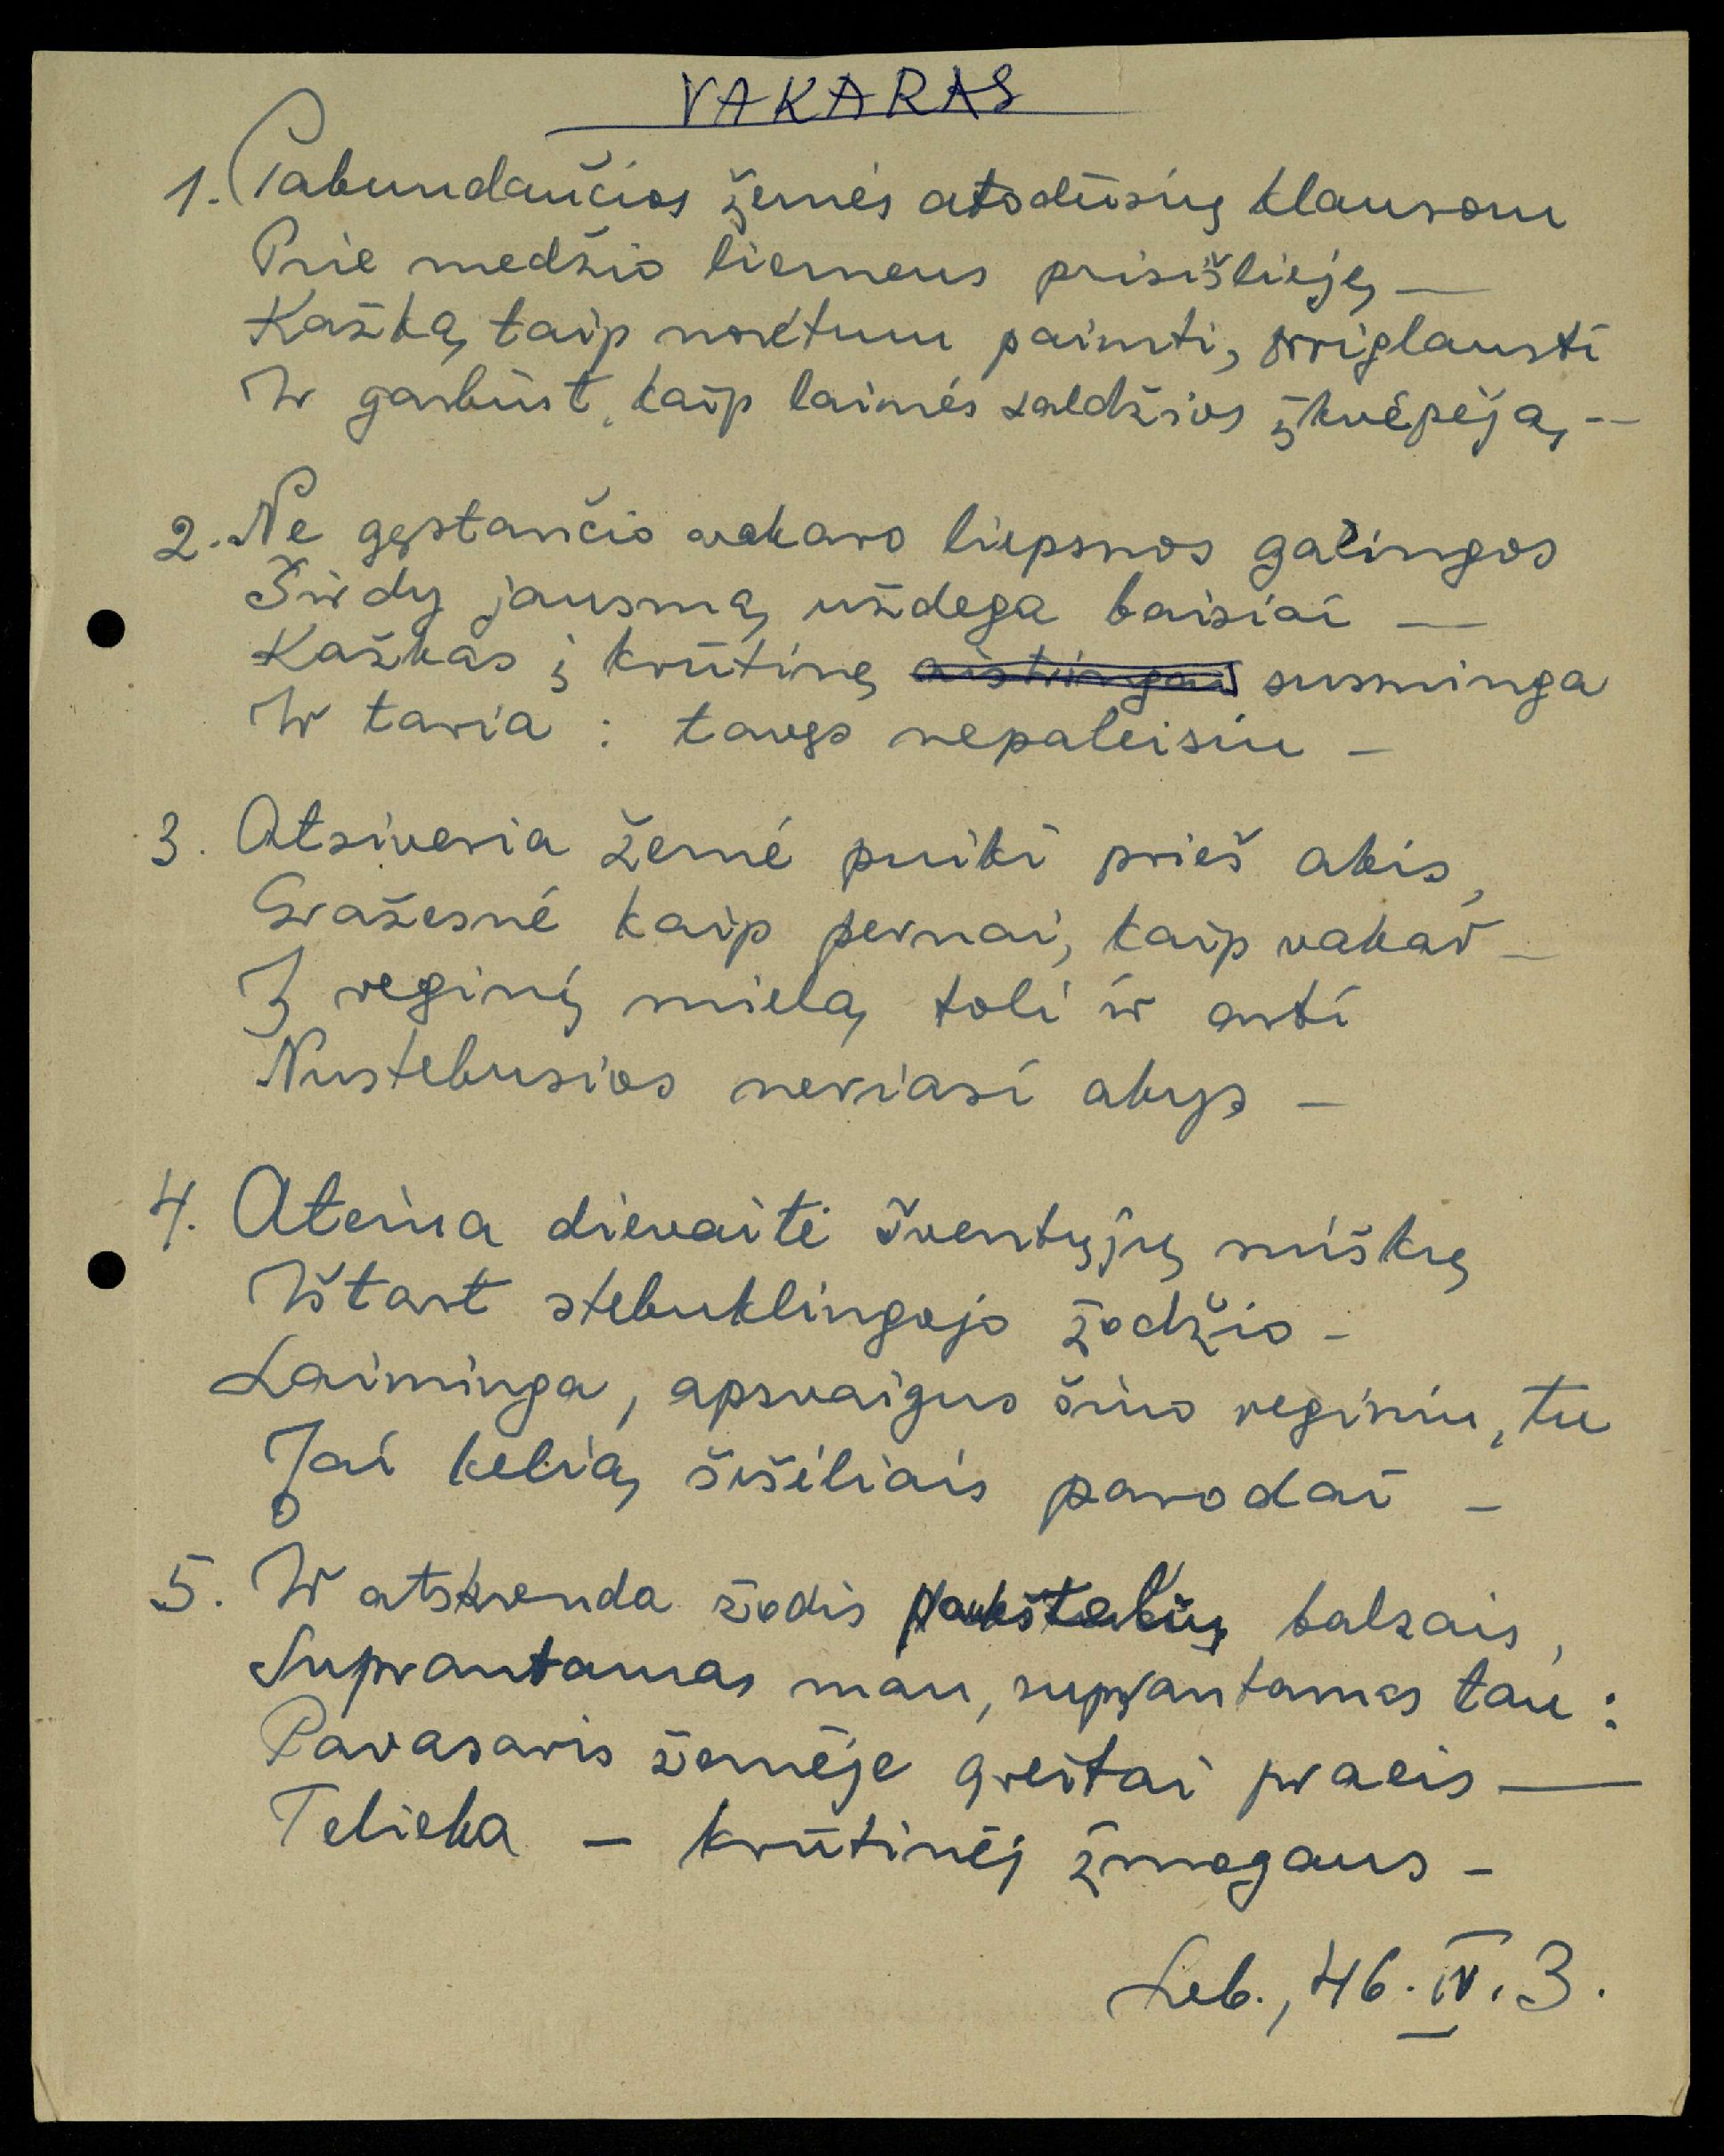 VAKARAS
1. Pabundančios žemės atodūsių klausom
Prie medžio liemens prisišlieję, —
Kažką taip norėtum paimti, priglausti
Ir garbint, kaip laimės saldžios įkvėpėją, —
2. Ne gęstančio vakaro liepsnos galingos
Širdy jausmą uždega baisiai —
Kažkas į krūtinę aistringai susminga
Ir taria : tavęs nepaleisiu —
3. Atsiveria žemė puiki prieš akis,
Gražesnė kaip pernai, kaip vakar —
Į reginį mielą toli ir arti
Nustebusios neriasi akys —
4. Ateina dievaitė šventųjų miškų
Ištart stebuklingojo žodžio —
Laiminga, apsvaigus šiuo reginiu, tu
Jai kelią šišėliais parodai —
5. Ir atskrenda žodis paukštelių balsais,
Suprantamas man, suprantamas tau :
Pavasaris žemėje greitai praeis —
Telieka — krūtinėj žmogaus —
Leb., 46. IV. 3.